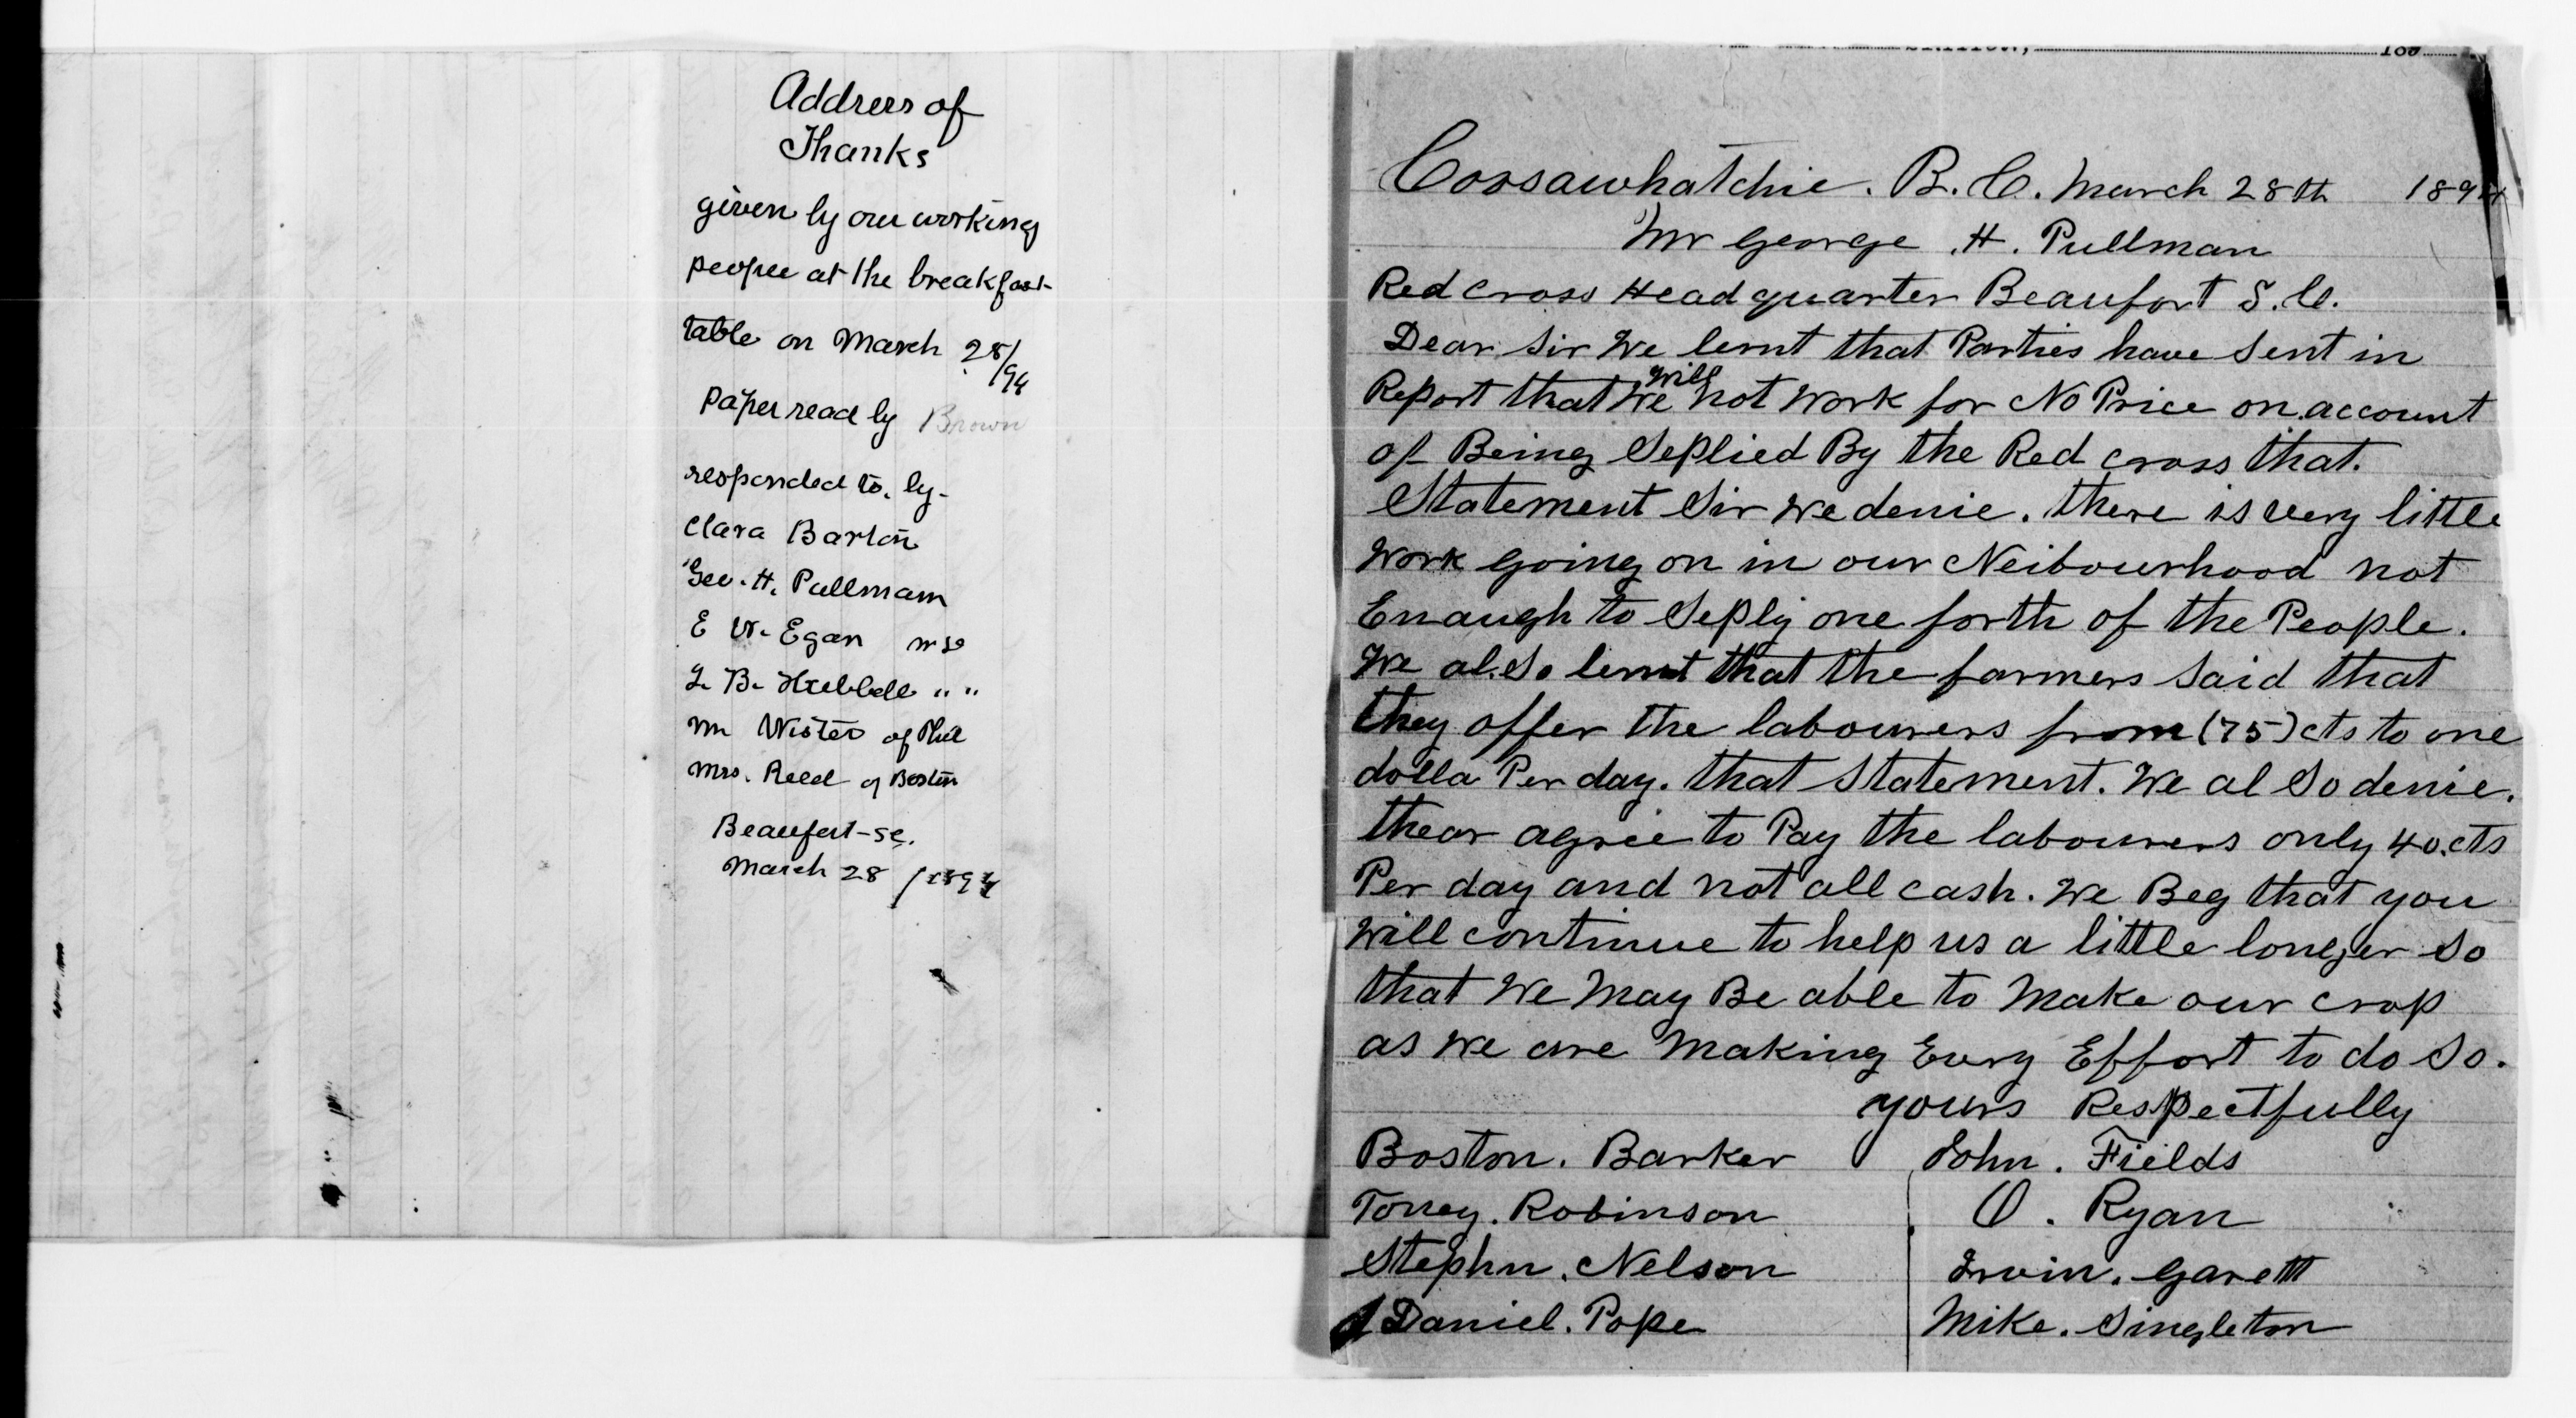 Address of
Thanks
given by our working
people at the breakfast
table on March 28/94
paper read by Brown
responded to. by-
Clara Barton
Geo. H. Pullman
E W. Egan
J. B. Hubbell " "
Mr Wister of Phil
Mrs. Reed of Boston
Beaufort-SC.
March 28 / 1894
189
Coosawhatchie. B. C. March 28th 1894
Mr George .H. Pullman
Red Cross Head quarter Beaufort S.C.
Dear Sir We lernt that Parties have Sent in
Report that We will not Work for No Price on account
of Being Seplied By the Red Cross that.
Statement Sir We denie. there is very little
Work going on in our Neibourhood not
Enaugh to Seply one forth of the People.
We al.So lernt that the farmers Said that
they offer the labourers from (75) cts to one
dolla Per day. that Statement. We al So denie.
thear agree to Pay the labourers only 40.cts
Per day and not all cash. We Beg that you
Will continue to help us a little longer So
that We May Be able to Make our crop
as We are Making Evry Effort to do So.
yours Respectfully
Boston. Barker John. Fields
Toney. Robinson O. Ryan
Stephn. Nelson Irvin. Garett
Daniel. Pope Mike. Singleton